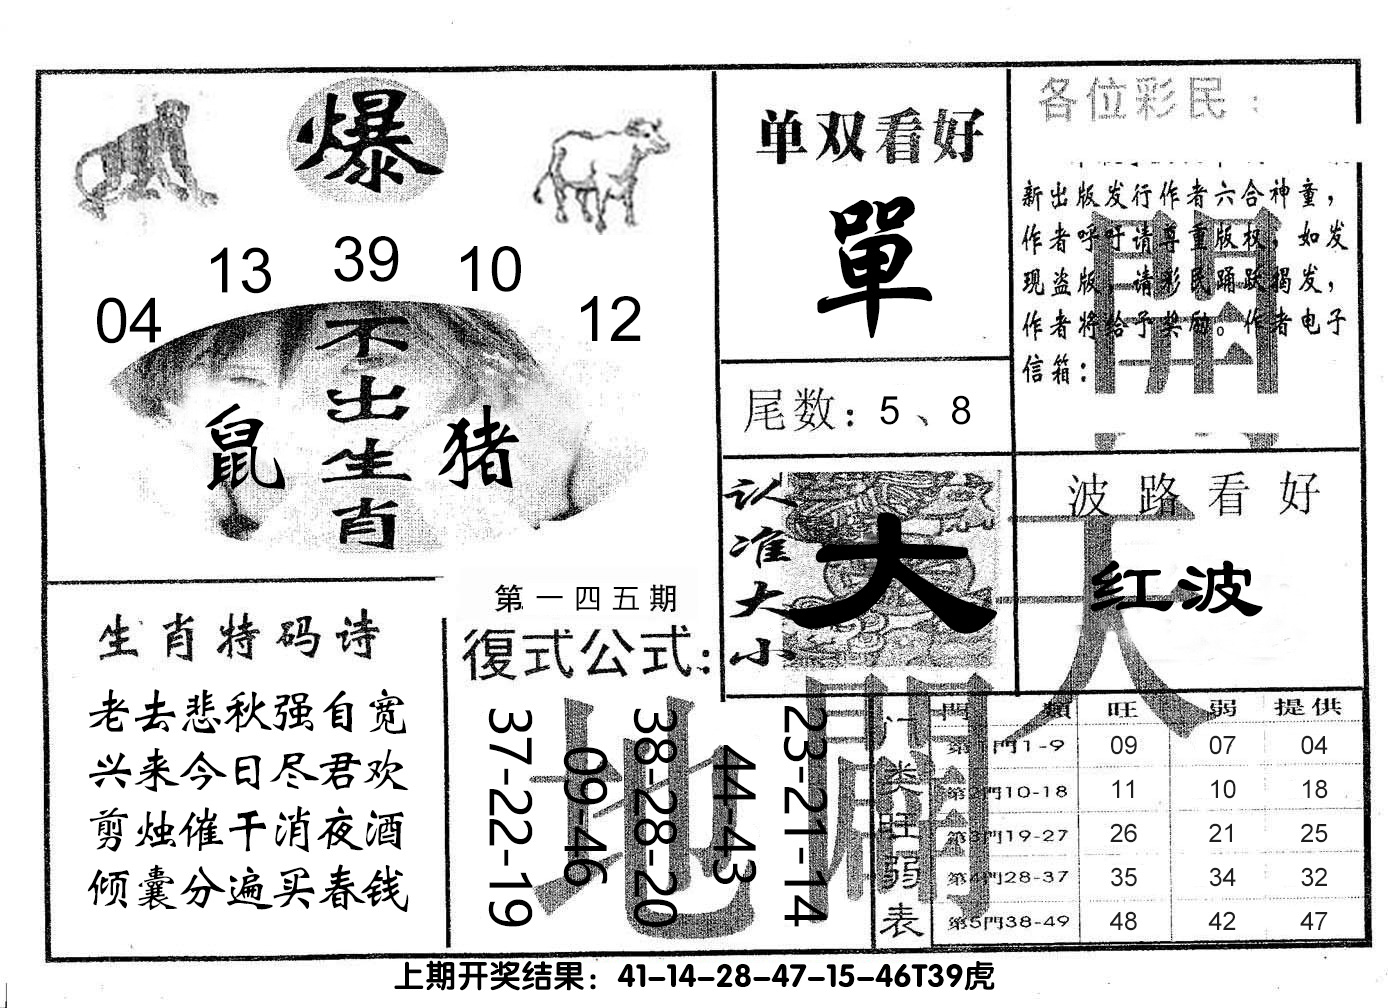 爆
04
13
39
10
12
不出生肖
鼠
猪
单双看好
單
尾数：5、8
认准大小
大
各位彩民：
新出版发行作者六合神童，
作者呼吁请尊重版权，如发
现盗版，请彩民踊跃揭发，
作者将给予奖励。作者电子
信箱：
波路看好
红波
天
開
地
開
生肖特码诗
老去悲秋强自宽
兴来今日尽君欢
剪烛催干消夜酒
倾囊分遍买春钱
第一四五期
復式公式：
37-22-19
09-46
38-28-20
44-43
23-21-14
门类旺弱表
門 類 旺 弱 提供
第1門1-9 09 07 04
第2門10-18 11 10 18
第3門19-27 26 21 25
第4門28-37 35 34 32
第5門38-49 48 42 47
上期开奖结果：41-14-28-47-15-46T39虎